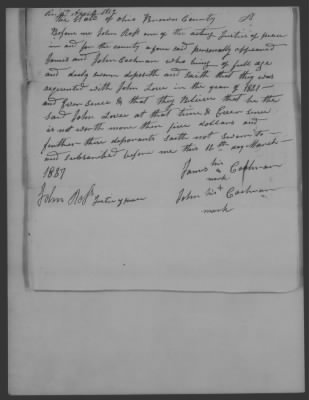 the State of Ohio Brown County
Before me John Ross one of the acting Justice of peace
in and for the county afore said personally appeared
James and John Cochran who being of full age
and duly sworn deposeth and saith that they was
acquainted with John Love in the year of 1821
and Ever since & that they Believe that he the
Said John Love at that time & Ever since
is not worth more then five dollars and
further these deponants saith not sworn to
and subscribed before me this 16th day March
1837
James his Cochran
mark
John Ross Justice of peace
John his Cochran
mark